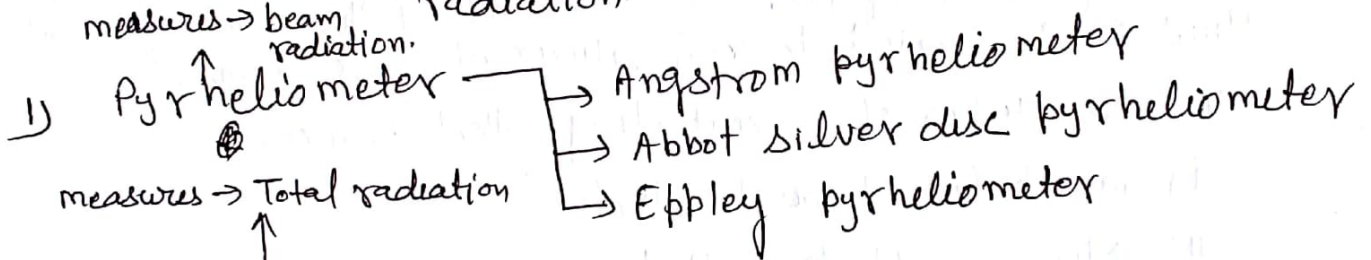 radiation
measures → beam
radiation.
1) Pyrheliometer
→ Angstrom pyrheliometer
→ Abbot silver disc pyrheliometer
→ Eppley pyrheliometer
measures → Total radiation